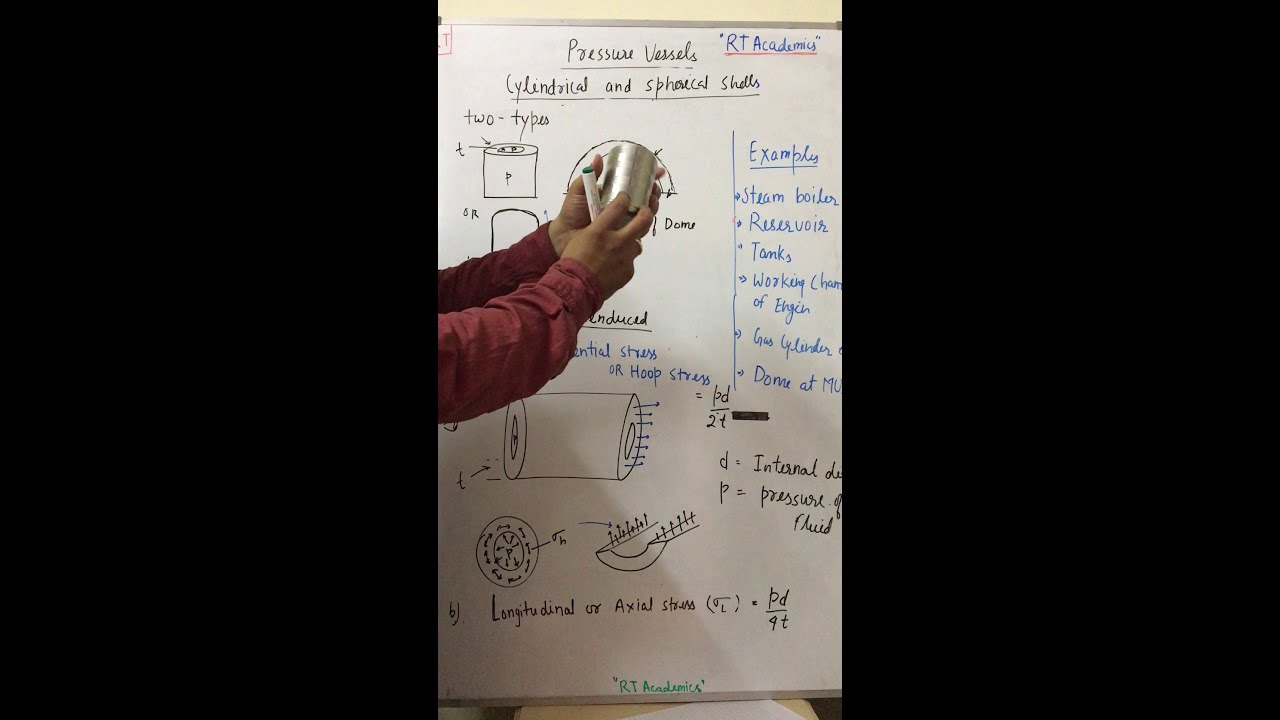 Pressure Vessels
"RT Academics"
Cylindrical and spherical shells
two-types
t
P
P
OR
Dome
Examples
Steam boiler
Reservoir
Tanks
Working Cham
of Engin
Gas Cylinder
Dome at MU
enduced
ential stress
OR Hoop stress
= pd
2t
t
d = Internal di
p = pressure of
fluid
P
σh
b) Longitudinal or Axial stress (σL) = pd
4t
"RT Academics"